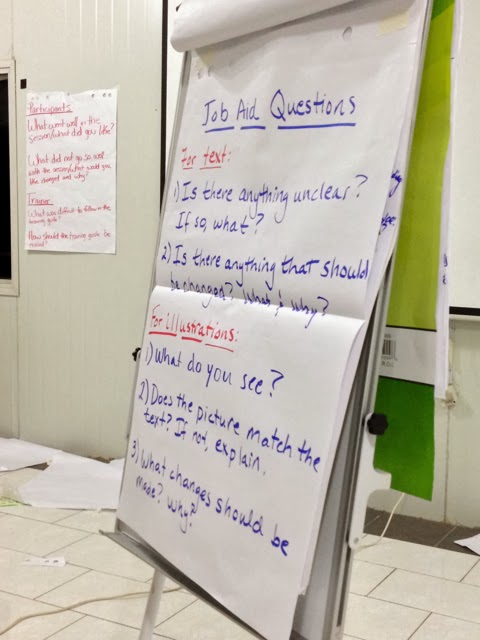 Participants:
What went well in the
session/what did you like?
What did not go so well
with the session/what would you
like changed and why?
Trainer
What was difficult to follow in the
training guide?
How should the training guide be
revised?
Job Aid Questions
For text:
1) Is there anything unclear?
If so, what?
2) Is there anything that should
be changed? What & Why?
For illustrations:
1) What do you see?
2) Does the picture match the
text? If not, explain.
3) What changes should be
made? Why?